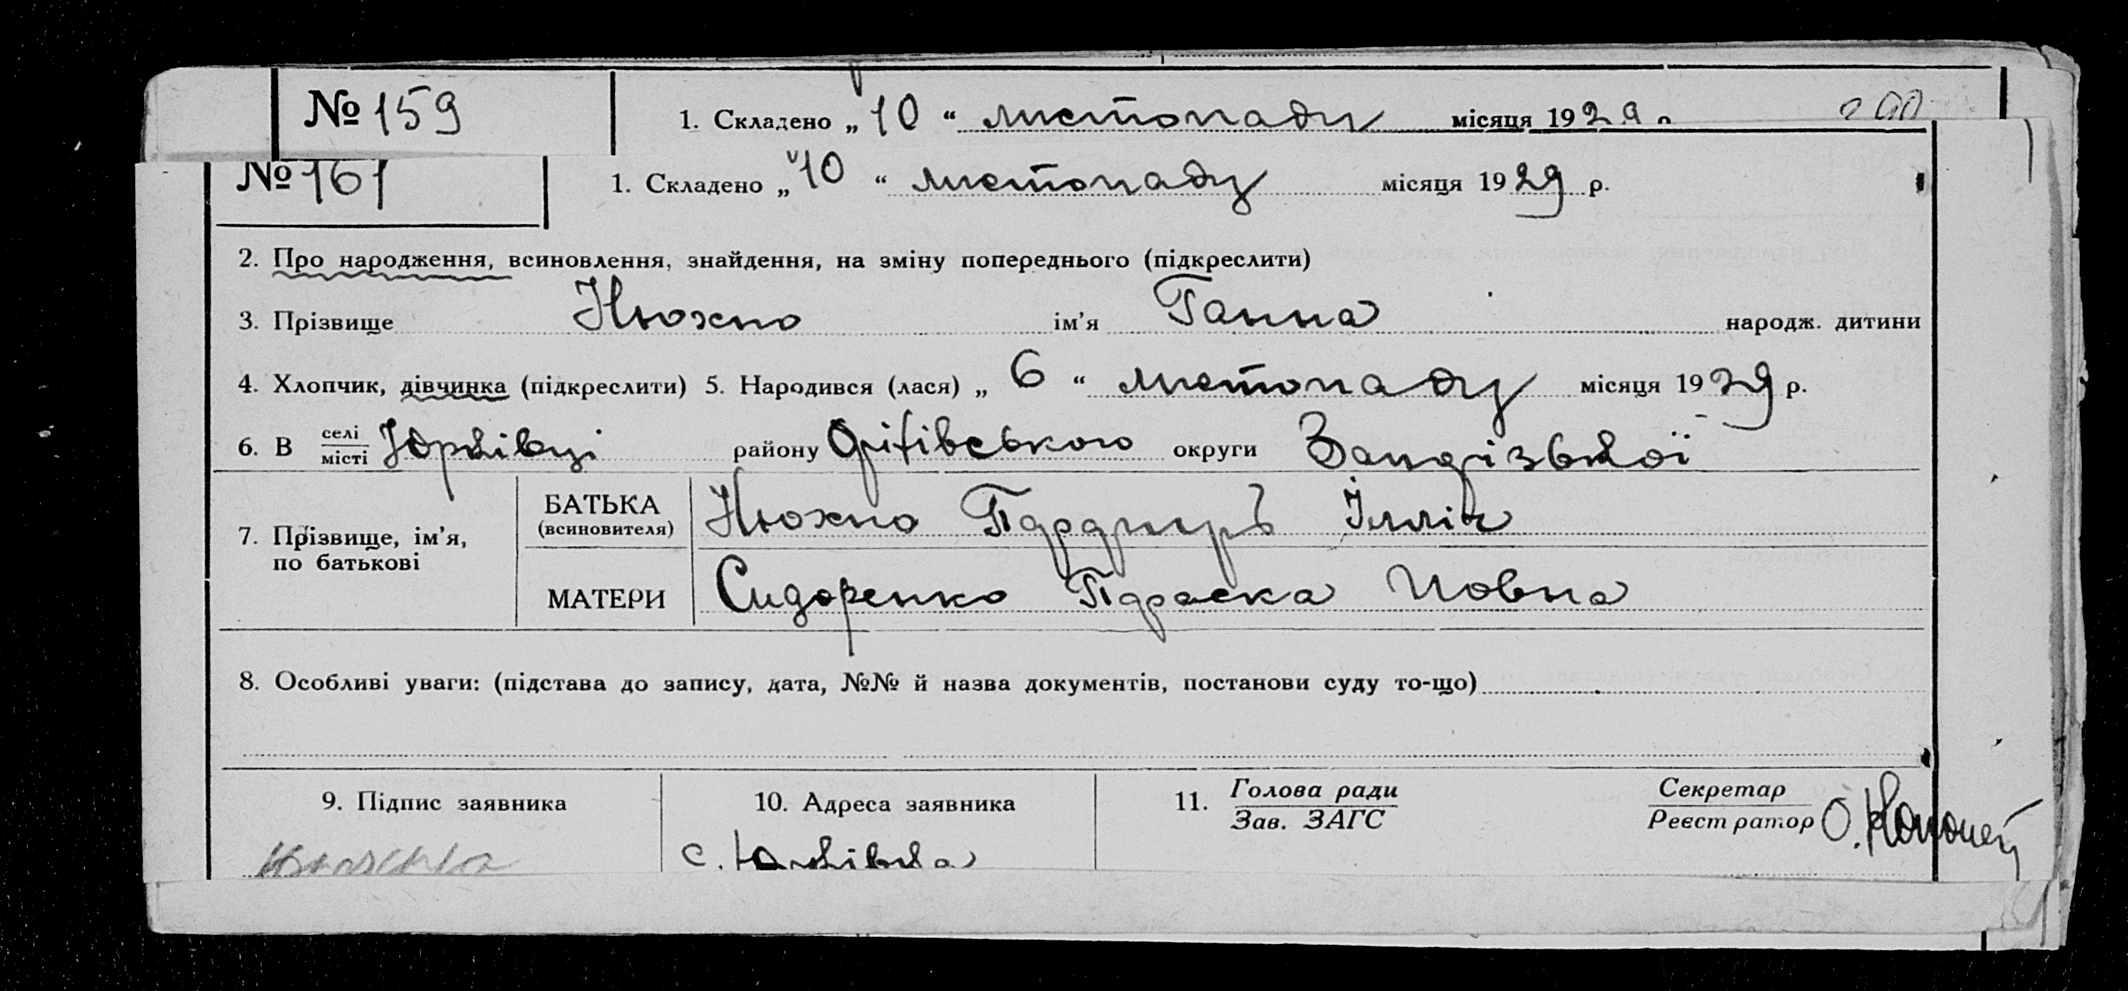 № 159 1. Складено „10“ листопаду місяця 1929 р
№ 161 1. Складено „10“ листопаду місяця 1929 р.
2. Про народження, всиновлення, знайдення, на зміну попереднього (підкреслити)
3. Прізвище Нюхно ім'я Ганна народж. дитини
4. Хлопчик, дівчинка (підкреслити) 5. Народився (лася) „6“ листопаду місяця 1929 р.
6. В селі місті Юрківці району Оріхівського округи Запорізької
БАТЬКА Нюхно Ілліч
(всиновителя)
7. Прізвище, ім'я,
по батькові
МАТЕРИ Сидоренко Параска Йовна
8. Особливі уваги: (підстава до запису, дата, №№ й назва документів, постанови суду то-що)
9. Підпис заявника 10. Адреса заявника 11. Голова ради Секретар
Зав. ЗАГС Реєстратор О.
с. Юрківка